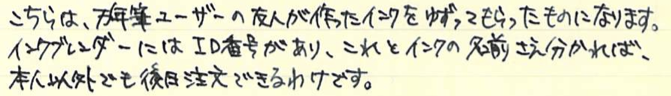 こちらは、万年筆ユーザーの友人が作ったインクをゆずってもらったものになります。
インクブレンダーにはID番号があり、これとインクの名前さえ分かれば、
本人以外でも後日注文できるわけです。